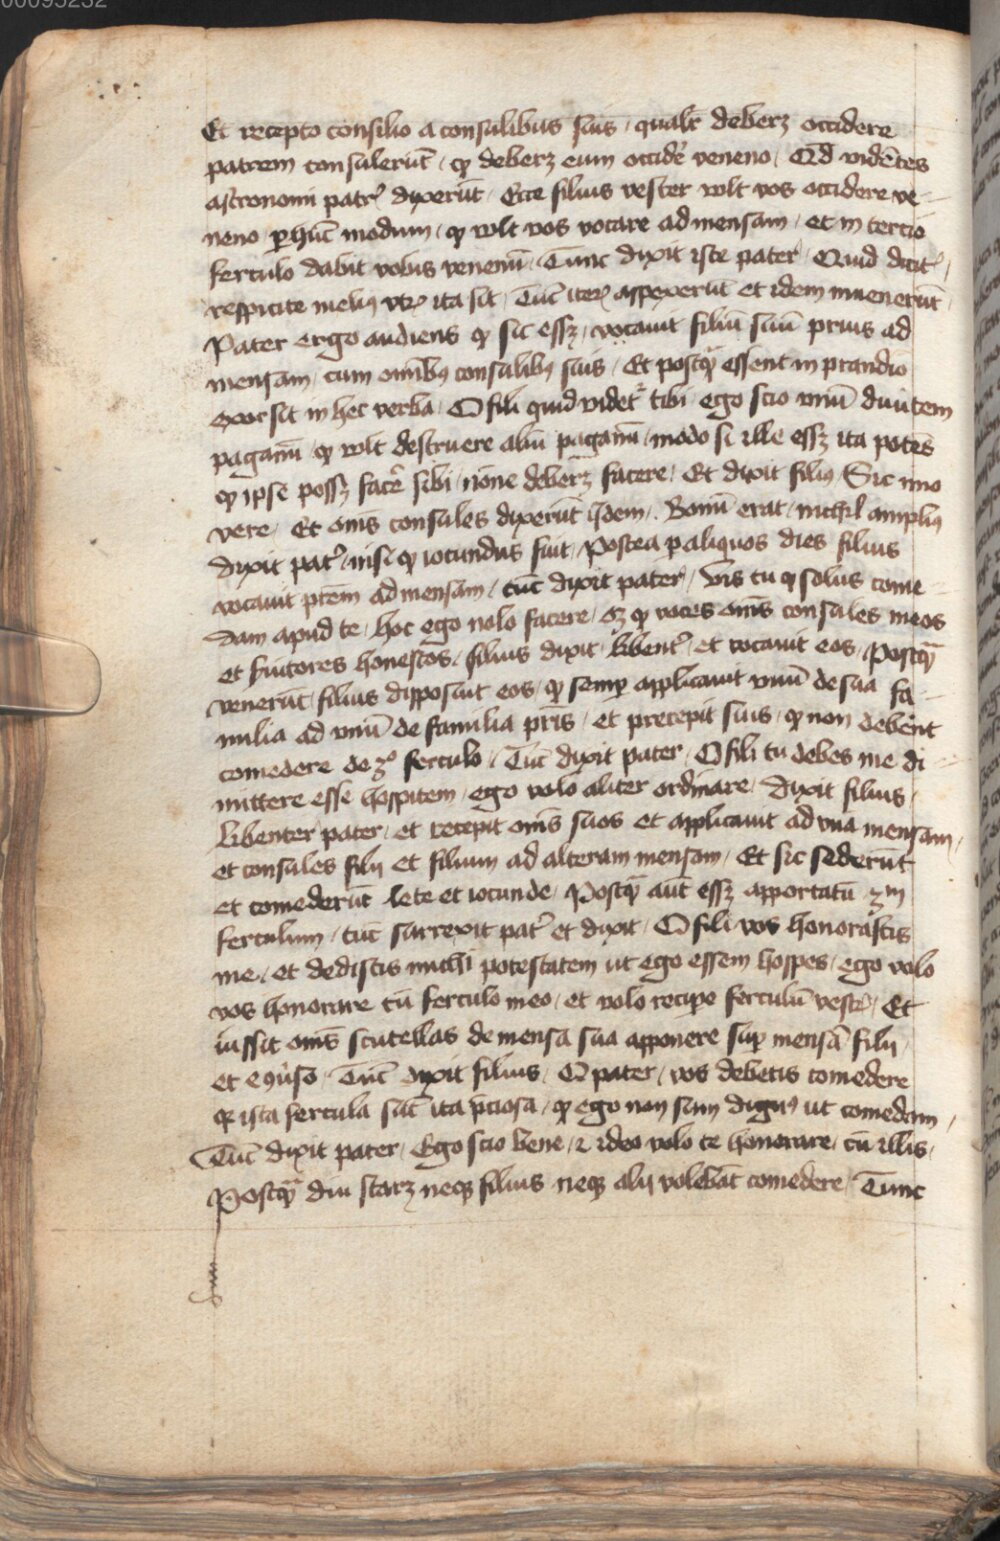 00095232
Et recepto consilio a consulibus suis / qualr̄ deberꝫ occidere
patrem consulerūt / ꝙ deberꝫ eum occidē veneno / Qd vidētes
astronomi patrꝰ dixerūt / Ecce filius vester wlt vos occidere ve-
neno / ꝑ hūc modum / ꝙ wlt vos vocare ad mensam / et in tercio
ferculo dabit vobis venenū / Tunc dixit iste pater / Quid dicitꝰ /
respicite meliꝰ vtꝝ ita sit / Tūc iteꝝ aspexerūt et idem inuenerūt /
Pater ergo audiens ꝙ sic essꝫ / vocauit filiū suū prius ad
mensam / cum omibꝰ consulibꝰ suis / Et postqᷓ essent in prandio
exorsit in hec verba / O fili quid videtᷣ tibi / ego scio vnū diuitem
paganū / ꝙ wlt destruere aliū paganū / modo si ille essꝫ ita potēs
ꝙ ipse possꝫ facē sibi / nōne deberꝫ facere / Et dixit filiꝰ / Sic imo
vere / Et om̄s consules dixerūt idem / Bonū erat / nichil ampliꝰ
dixit patꝰ / nisi ꝙ iocundus fuit / Postea ꝑ aliquos dies filius
vocauit pr̄em ad mensam / tūc dixit pater / Vis tu ꝙ solus come-
dam apud te / hoc ego nolo facere / sꝫ ꝙ voces om̄s consules meos
et fautores honestos / filius dixit / libentꝰ / et vocauit eos / Postqᷓ
venerūt / filius disposuit eos / ꝙ semꝑ applicauit vnū de sua fa-
milia ad vnū de familia pr̄is / et precepit suis / ꝙ non debent
comedere de 3º ferculo / Tūc dixit pater / O fili tu debes me di-
mittere esse hospitem / ego volo aliter ordinare / Dixit filius /
libenter pater / et recepit om̄s suos et applicauit ad vna mensam /
et consules filij et filium ad alteram mensam / Et sic sederūt
et comederūt lete et iocunde / Postqᷓ aūt essꝫ apportatū 3m
ferculum / tūc surrexit patꝰ et dixit / O fili vos honorastis
me / et dedistis michi potestatem ut ego essem hospes / ego volo
vos honorare cū ferculo meo / et volo recipe ferculū vestꝝ / Et
iussit om̄s scutellas de mensa sua apponere suꝑ mensā filij
et eꝯuso / Tūc dixit filius / O pater / vos debetis comedere
qꝛ ista fercula sūt ita p̄ciosa / ꝙ ego non sum dignꝰ ut comedam /
Tūc dixit pater / Ego scio bene / ⁊ ideo volo te honorare / cū illis /
Postqᷓ diu starꝫ neqꝫ filius neqꝫ alij volebāt comedere / Tunc